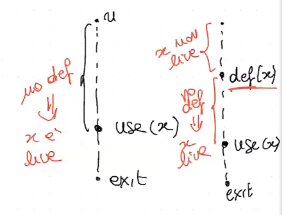 u
no def
⇓
x è
live
use (x)
exit
x non
live
def (x)
no
def
⇓
x
live
use(x)
exit